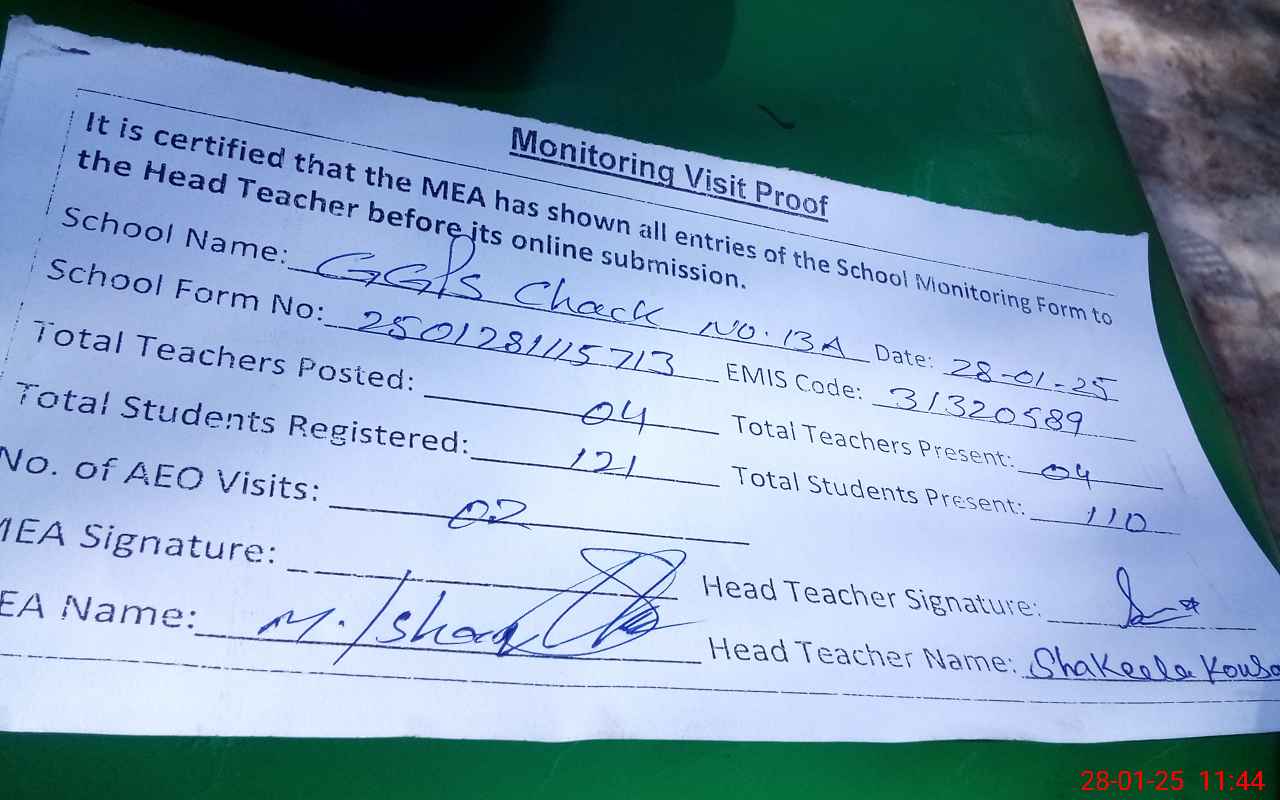 Monitoring Visit Proof
It is certified that the MEA has shown all entries of the School Monitoring Form to
the Head Teacher before its online submission.
School Name: GGPS Chack No. 13A Date: 28-01-25
School Form No: 2501281115713 EMIS Code: 31320589
Total Teachers Posted: 04 Total Teachers Present: 04
Total Students Registered: 121 Total Students Present: 110
No. of AEO Visits: 02
MEA Signature: Head Teacher Signature:
EA Name: M. Ishaq Head Teacher Name: Shakeela Kousa
28-01-25 11:44